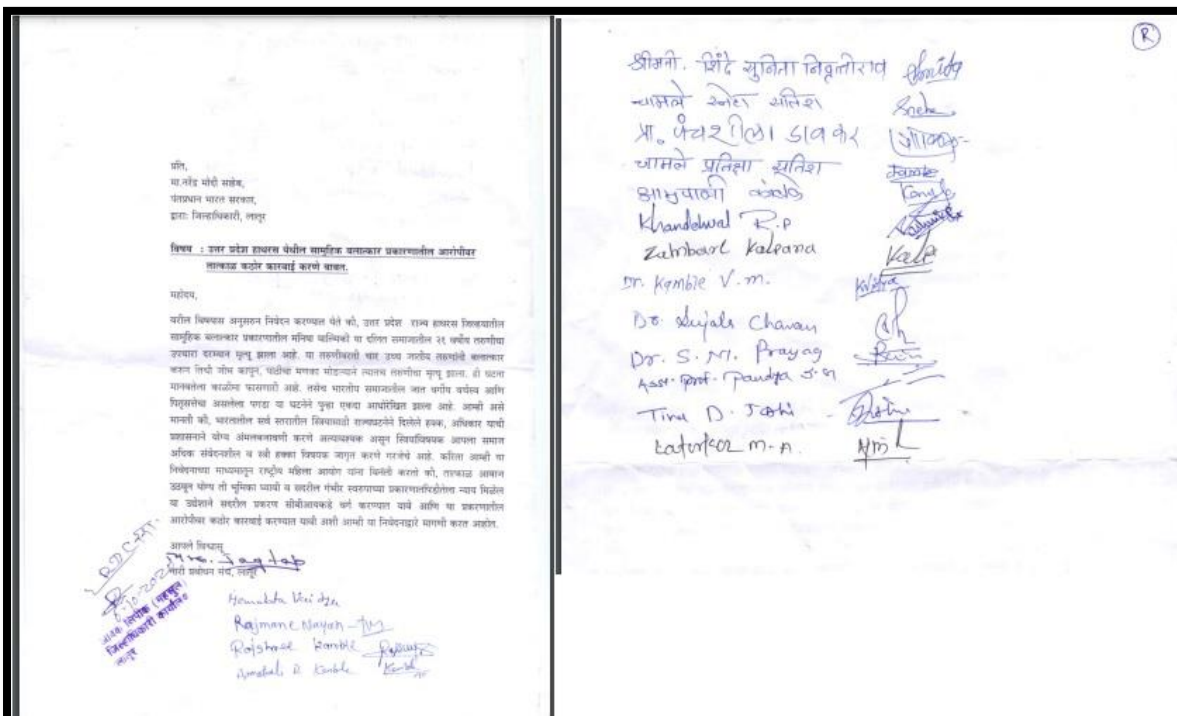 प्रति,
मा.नरेंद्र मोदी साहेब,
पंतप्रधान भारत सरकार,
द्वारा: जिल्हाधिकारी, लातूर
विषय : उत्तर प्रदेश हाथरस येथील सामुहिक बलात्कार प्रकारणातील आरोपीवर
तात्काळ कठोर कारवाई करणे बाबत.
महोदय,
वरील विषयास अनुसरुन निवेदन करण्यात येते की, उत्तर प्रदेश राज्य हाथरस जिल्ह्यातील
सामुहिक बलात्कार प्रकारणातील मनिषा वाल्मिकी या दलित समाजातील २१ वर्षीय तरुणीचा
उपचारा दरम्यान मृत्यू झाला आहे. या तरुणीवरती चार उच्च जातीय तरुणांनी बलात्कार
करुन तिची जीभ कापून, पाठीचा मणका मोडल्याने त्यातच तरुणीचा मृत्यू झाला. ही घटना
मानवतेला काळीमा फासणारी आहे. तसेच भारतीय समाजातील जात वर्गीय वर्चस्व आणि
पितृसत्तेचा असलेला पगडा या घटनेने पुन्हा एकदा आधोरेखित झाला आहे. आम्ही असे
मानतो की, भारतातील सर्व स्तरातील स्त्रियांसाठी राज्यघटनेने दिलेले हक्क, अधिकार याची
प्रशासनाने योग्य अंमलबजावणी करणे अत्यावश्यक असून स्त्रियांविषयक आपला समाज
अधिक संवेदनशील व स्त्री हक्का विषयक जागृत करणे गरजेचे आहे. करिता आम्ही या
निवेदनाच्या माध्यमातून राष्ट्रीय महिला आयोग यांना विनंती करतो की, तात्काळ आवाज
उठवून योग्य ती भूमिका घ्यावी व सदरील गंभीर स्वरुपाच्या प्रकारणातपिडीतेला न्याय मिळेल
या उद्देशाने सदरील प्रकरण सीबीआयकडे वर्ग करण्यात यावे आणि या प्रकरणातील
आरोपीवर कठोर कारवाई करण्यात यावी अशी आम्ही या निवेदनाद्वारे मागणी करत आहोत.
आपले विश्वासू
Mrs. Jagtap
नारी प्रबोधन मंच, लातूर
आवक लिपीक (महसूल)
जिल्हाधिकारी कार्यालय
लातूर
Rajmane Nayan
Rajshree Kamble
Kamble
R
श्रीमती. शिंदे सुनिता निवृत्तीराव
चामले स्नेहा सतिश Sneha
प्रा. पंचशीला डावकर
चामले प्रतिक्षा सतिश
आम्रपाली कांबळे Kamble
Khandelwal R.P
Zambare Kalpana Kalp
Dr. Kamble V.m.
Dr. Sujala Chavan
Dr. S. M. Prayag
Asst. Prof. Pandya
Tinu D. Joshi
Katurkor M.A.